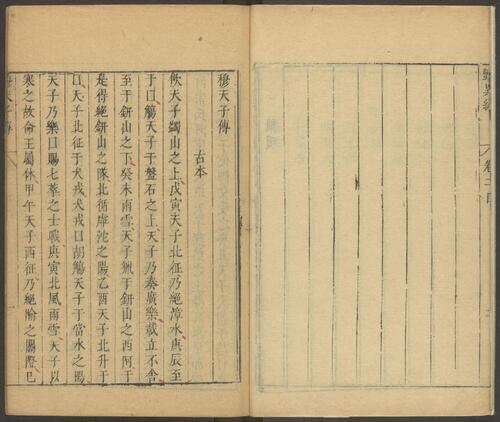 穆天子傳
古本
飲天子蠲山之上戊寅天子北征乃絕漳水庚辰至
于□觴天子于盤石之上天子乃奏廣樂載立不舍
至于鈃山之下癸未雨雪天子獵于鈃山之西阿于
是得絕鈃山之隊北循虖沱之陽乙酉天子北升于
□天子北征于犬戎犬戎□胡觴天子于當水之陽
天子乃樂□賜七萃之士戰庚寅北風雨雪天子以
寒之故命王屬休甲午天子西征乃絕隃之關隥已
穆天子傳
一